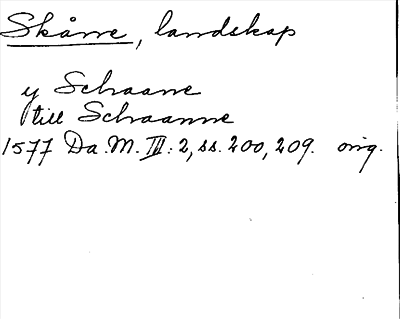 Skåne, landskap
y Schaane
till Schaanne
1577 Da. M. III: 2, ss. 200, 209. orig.